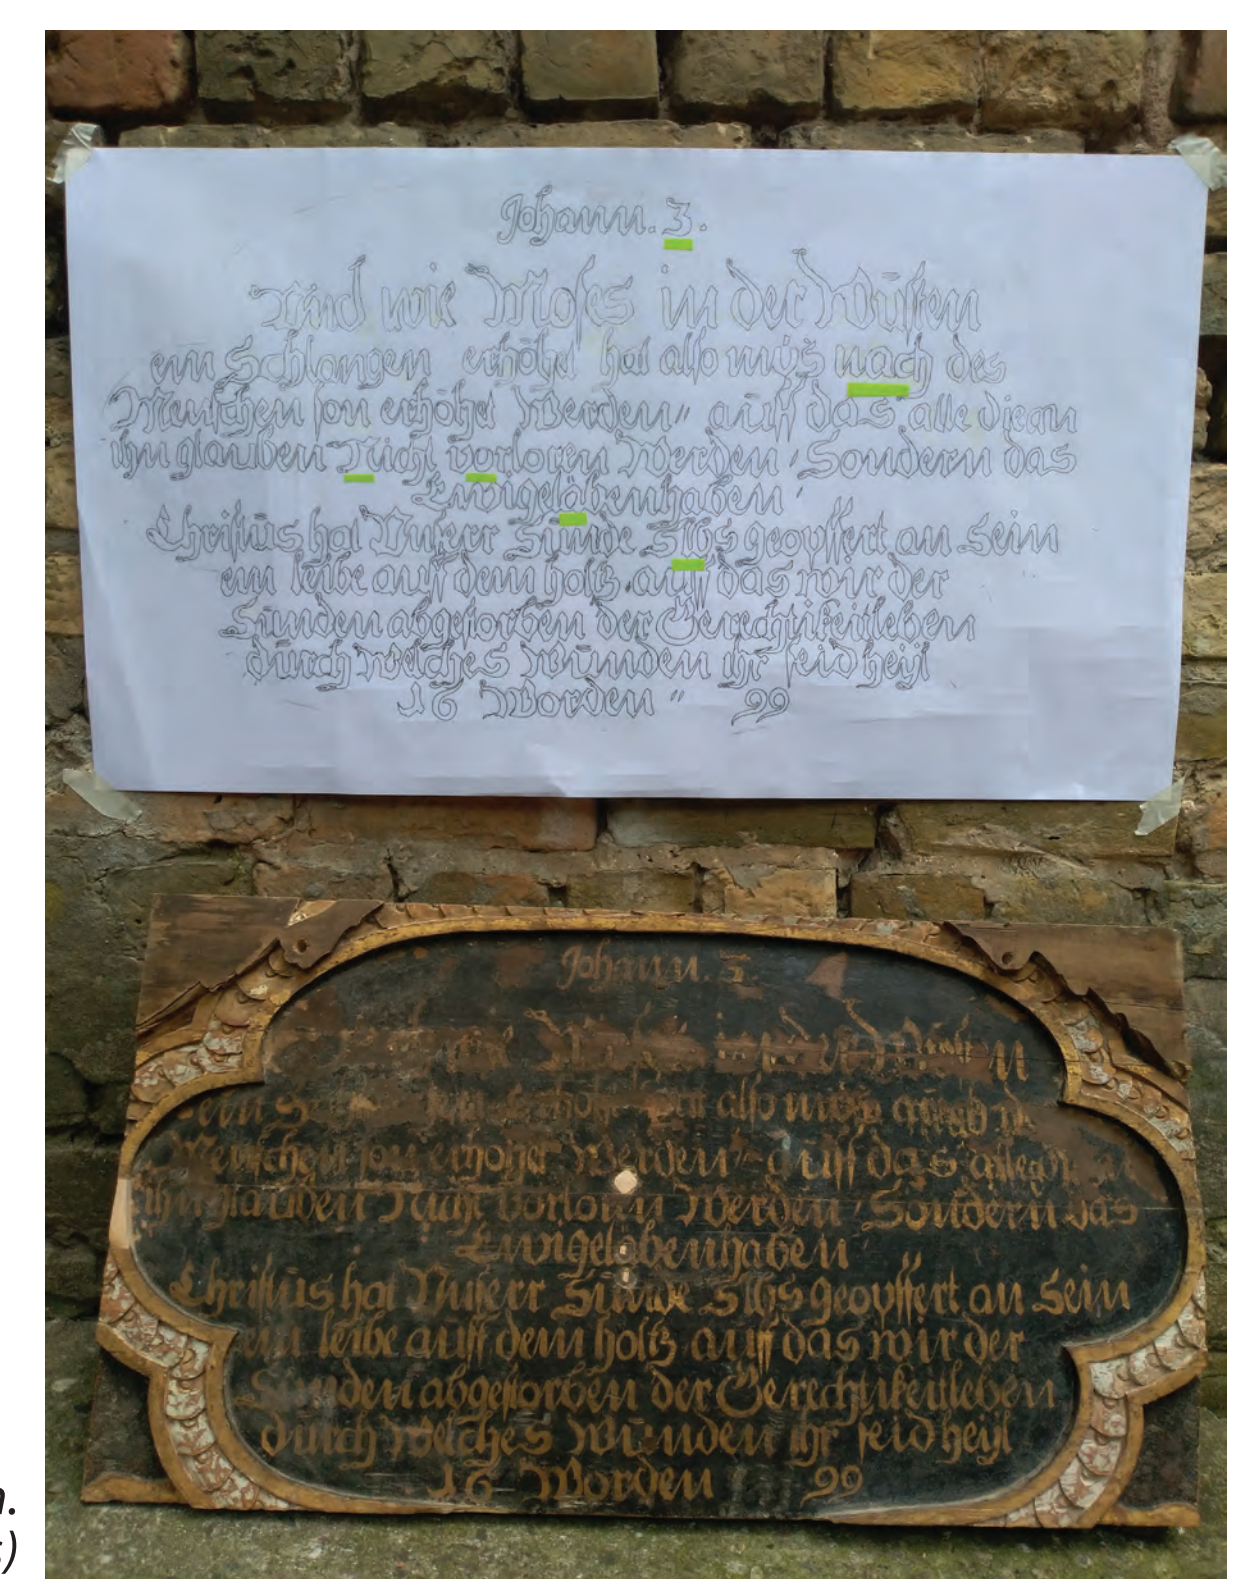 Johann. 3.
Und wie Moses in der Wüsten
ein Schlangen erhöhet hat also müs nach des
Menschen son erhöhet Werden" auff das alle die an
ihn glauben Nicht vorloren Werden, Sondern das
Ewige läbenhaben
Christus hat Unserr Sünde slbs geopffert an sein
em leibe auff dem holtz auff das wir der
Sünden abgestorben der Gerechtikeitleben
dürch welches wunden ihr seid heyl
16 Worden" 99
Johann. 3.
in der Wüsten
ein also müs
Menschen son erhöhet Werden auff das alle
ihn glauben Nicht vorloren Werden, Sondern das
Ewige läbenhaben
Christus hat Unserr Sünde slbs geopffert an sein
em leibe auff dem holtz auff das wir der
Sünden abgestorben der Gerechtikeitleben
dürch welches wunden ihr seid heyl
16 Worden 99
n.
s)